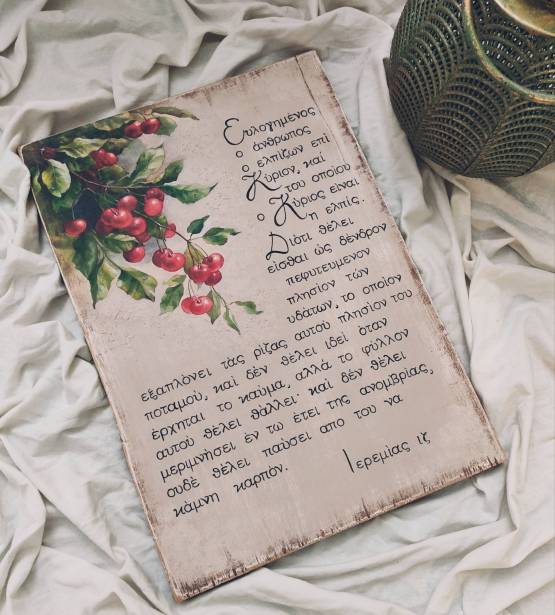 Ευλογημενος
ο άνθρωπος
ο ελπίζων επί
Κύριον, καί
του οποίου
ο Κύριος είναι
η ελπίς.
Διότι θέλει
είσθαι ώς δένδρον
πεφυτευμενον
πλησίον τών
υδάτων, το οποίον
εξαπλόνει τάς ρίζας αυτού πλησίον του
ποταμού, καί δέν θέλει ιδεί όταν
έρχηται το καύμα, αλλά το φύλλον
αυτού θέλει θάλλει· καί δέν θέλει
μεριμνήσει έν τω έτει της ανομβρίας,
ουδέ θέλει παύσει απο του να
κάμνη καρπόν.
Ιερεμίας ιζ